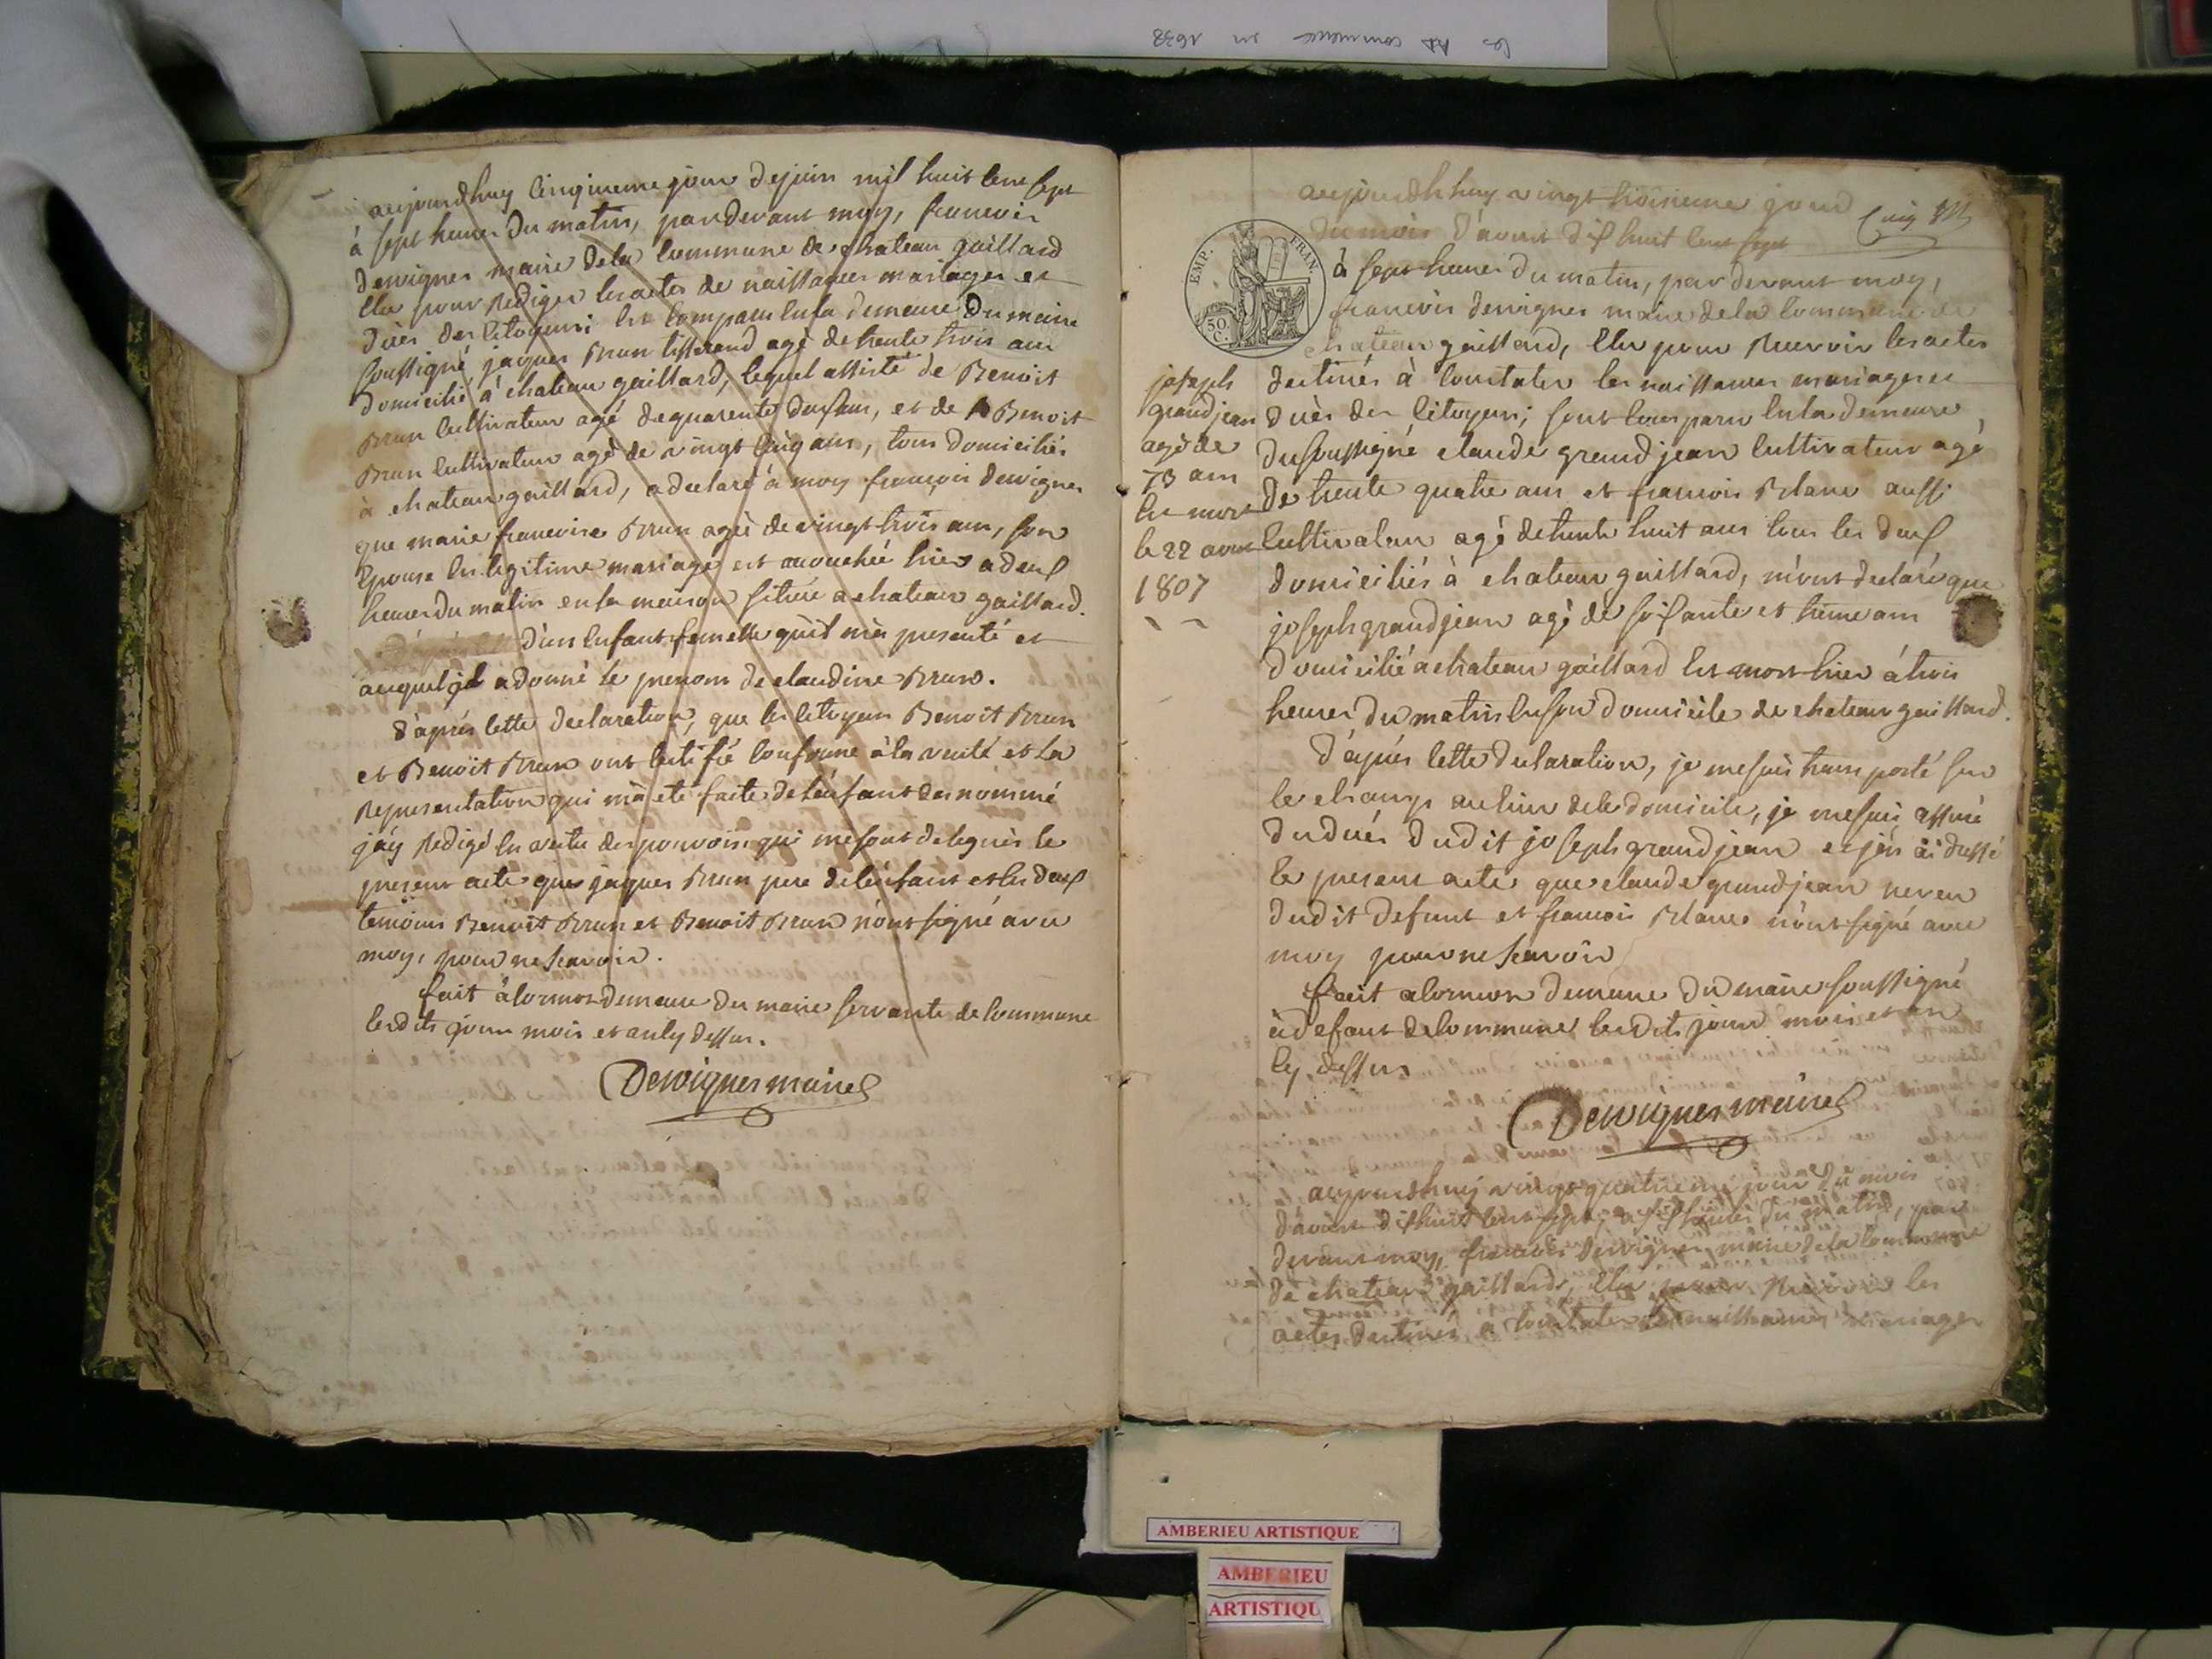 les commence en 1638
aujourdhuy Cinquieme jour dejuin mil huit Cent sept
à sept heures du matin, pardevant moy, francois
dervignes maire dela Commune de chateau gaillard
Elu pour Rediger les actes de naissances mariages et
dués des Citoyens; Est Comparu En la demeure du maire
soussigné jaques Brun tisserand agé detrente trois ans
domicilié à chateau gaillard, lequel assisté de Benoit
Brun Cultivateur agé dequarente deux ans, et de Benoit
Brun Cultivateur agé de vingt Cinq ans, tous domiciliés
à chateau gaillard, a declaré à moy françois dervignes
que marie francoise Brun agée de vingt trois ans, son
Epouse En legitime mariage est acouchée hier a deux
heures du matin en sa maison située a chateau gaillard.
d'un Enfant femelle qu'il m'a presenté et
auquel jl a donné le prenom de claudine Brun.
d'aprés Cette declaration, que les Citoyens Benoit Brun
et Benoit Brun ont Certifié Conforme à la verité et la
Representation qui m'a eté faite de l'enfant denommé
j'ay Redigé En vertu des pouvoirs qui me sont delegués le
present acte que jaques Brun pere de l'enfant et les deux
temoins Benoit Brun et Benoit Brun n'ont signé avec
moy, pour ne scavoir.
fait à lormos demeure du maire servante de Commune
lesdits jour mois et an Cy dessus.
Dervignes maire
aujourdhuy vingt troisieme jour
du mois d'aoust dix huit Cent sept
EMP. FRAN.
50 C.
à sept heures du matin, par devant moy,
francois dervignes maire dela Commune de
chateau gaillard, Elu pour Recevoir les actes
destinés à Constater les naissances mariages et
dués des Citoyens; sont Comparu En la demeure
du soussigné claude grandjean Cultivateur agé
de trente quatre ans et francois Blanc aussi
Cultivateur agé detrente huit ans tous les deux
domiciliés à chateau gaillard, m'ont declaré que
joseph grandjean agé de soixante et treize ans
domicilié a chateau gaillard Est mort hier à trois
heures du matin En son domicile de chateau gaillard.
d'aprés Cette declaration, je me suis transporté sur
le champ au lieu de le domicile, je me suis assuré
du dués dudit joseph grandjean et j'en ai dressé
le present acte que claude grandjean neveu
dudit defunt et francois Blanc n'ont signé avec
moy pour ne scavoir
fait a lormos demeure du maire soussigné
à defaut de Commune lesdits jour mois et an
Cy dessus
Dervignes maire
joseph
grandjean
agé de
73 ans
Est mort
le 22 aoust
1807
aujourdhuy vingt quatrieme jour du mois
d'aoust dix huit Cent sept, a six heures du matin, par
devant moy, francois dervignes maire dela Commune
de chateau gaillard, Elu pour Recevoir les
actes destinés a Constater les naissances mariages
AMBERIEU ARTISTIQUE
AMBERIEU
ARTISTIQU